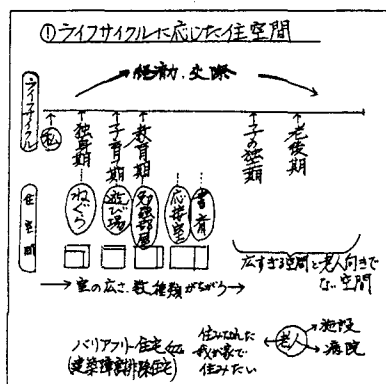 ①ライフサイクルに応じた住空間
経済力、交際
ライフサイクル
私
独身期
子育期
教育期
子の独立期
老後期
住空間
ねぐら
遊び場
勉強部屋
応接室
書斎
広すぎる空間と老人向きで
ない空間
→室の広さ、数、種類がちがう→
バリアフリー住宅
(建築障害排除住宅)
住みなれた
我が家で
住みたい
老人
施設
病院